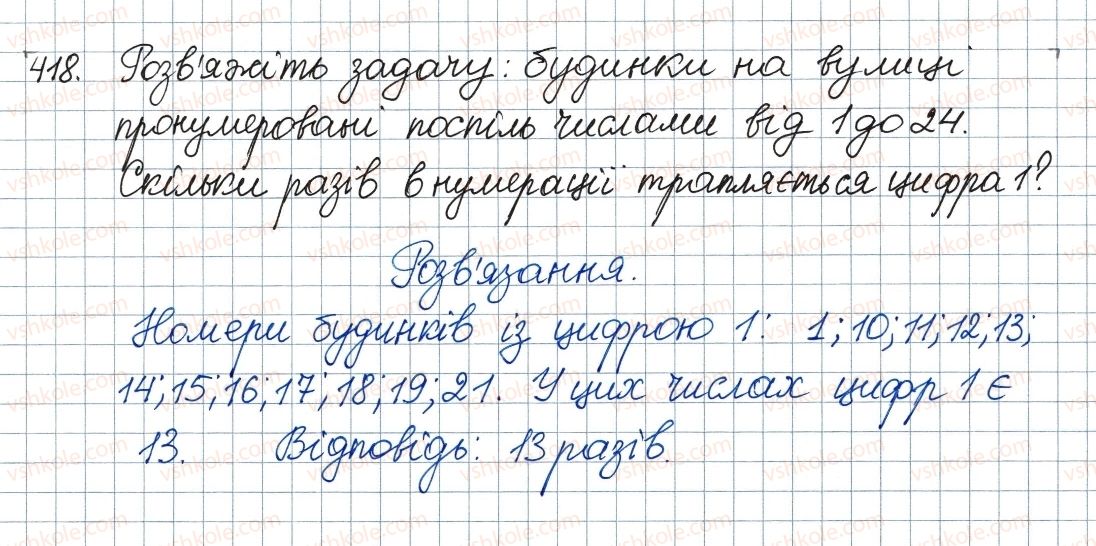 418. Розв'яжіть задачу: будинки на вулиці
пронумеровані поспіль числами від 1 до 24.
Скільки разів в нумерації трапляється цифра 1?
Розв'язання.
Номери будинків із цифрою 1: 1; 10; 11; 12; 13;
14; 15; 16; 17; 18; 19; 21. У цих числах цифр 1 є
13. Відповідь: 13 разів.